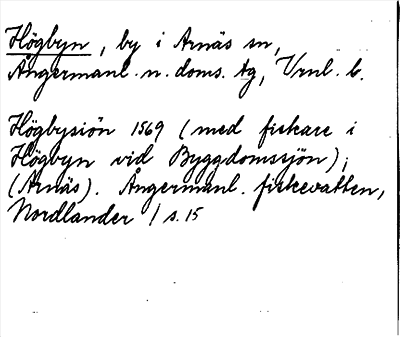 Högbyn, by i Arnäs sn,
Ångermanl. n. doms. tg, Vrnl. l.
Högbysiön 1569 (med fiskare i
Högbyn vid Byggdomssjön);
(Arnäs). Ångermanl. fiskevatten,
Nordlander / s. 15